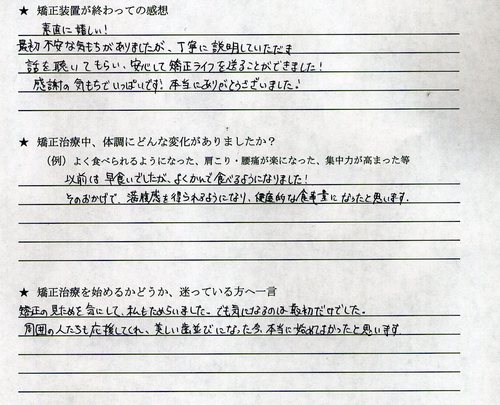 ★ 矯正装置が終わっての感想
素直に嬉しい！
最初不安な気もちがありましたが、丁寧に説明していただき
話を聴いてもらい、安心して矯正ライフを送ることができました！
感謝の気もちでいっぱいです！本当にありがとうございました！
★ 矯正治療中、体調にどんな変化がありましたか？
（例）よく食べられるようになった、肩こり・腰痛が楽になった、集中力が高まった等
以前は早食いでしたが、よくかんで食べるようになりました！
そのおかげで、満腹感を得られるようになり、健康的な食事量になったと思います。
★ 矯正治療を始めるかどうか、迷っている方へ一言
矯正の見ためを気にして、私もためらいました。でも気になるのは最初だけでした。
周囲の人たちも応援してくれ、美しい歯並びになった今、本当に始めてよかったと思います。